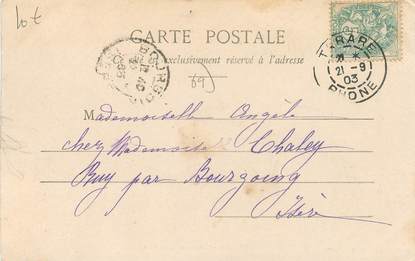 Lot
CARTE POSTALE
Ce côté est exclusivement réservé à l'adresse
69
TARARE
21 -9
03
RHÔNE
BOURGOIN
Mademoiselle Angèle
chez Mademoiselle Chaley
Ruy par Bourgoing
Isère